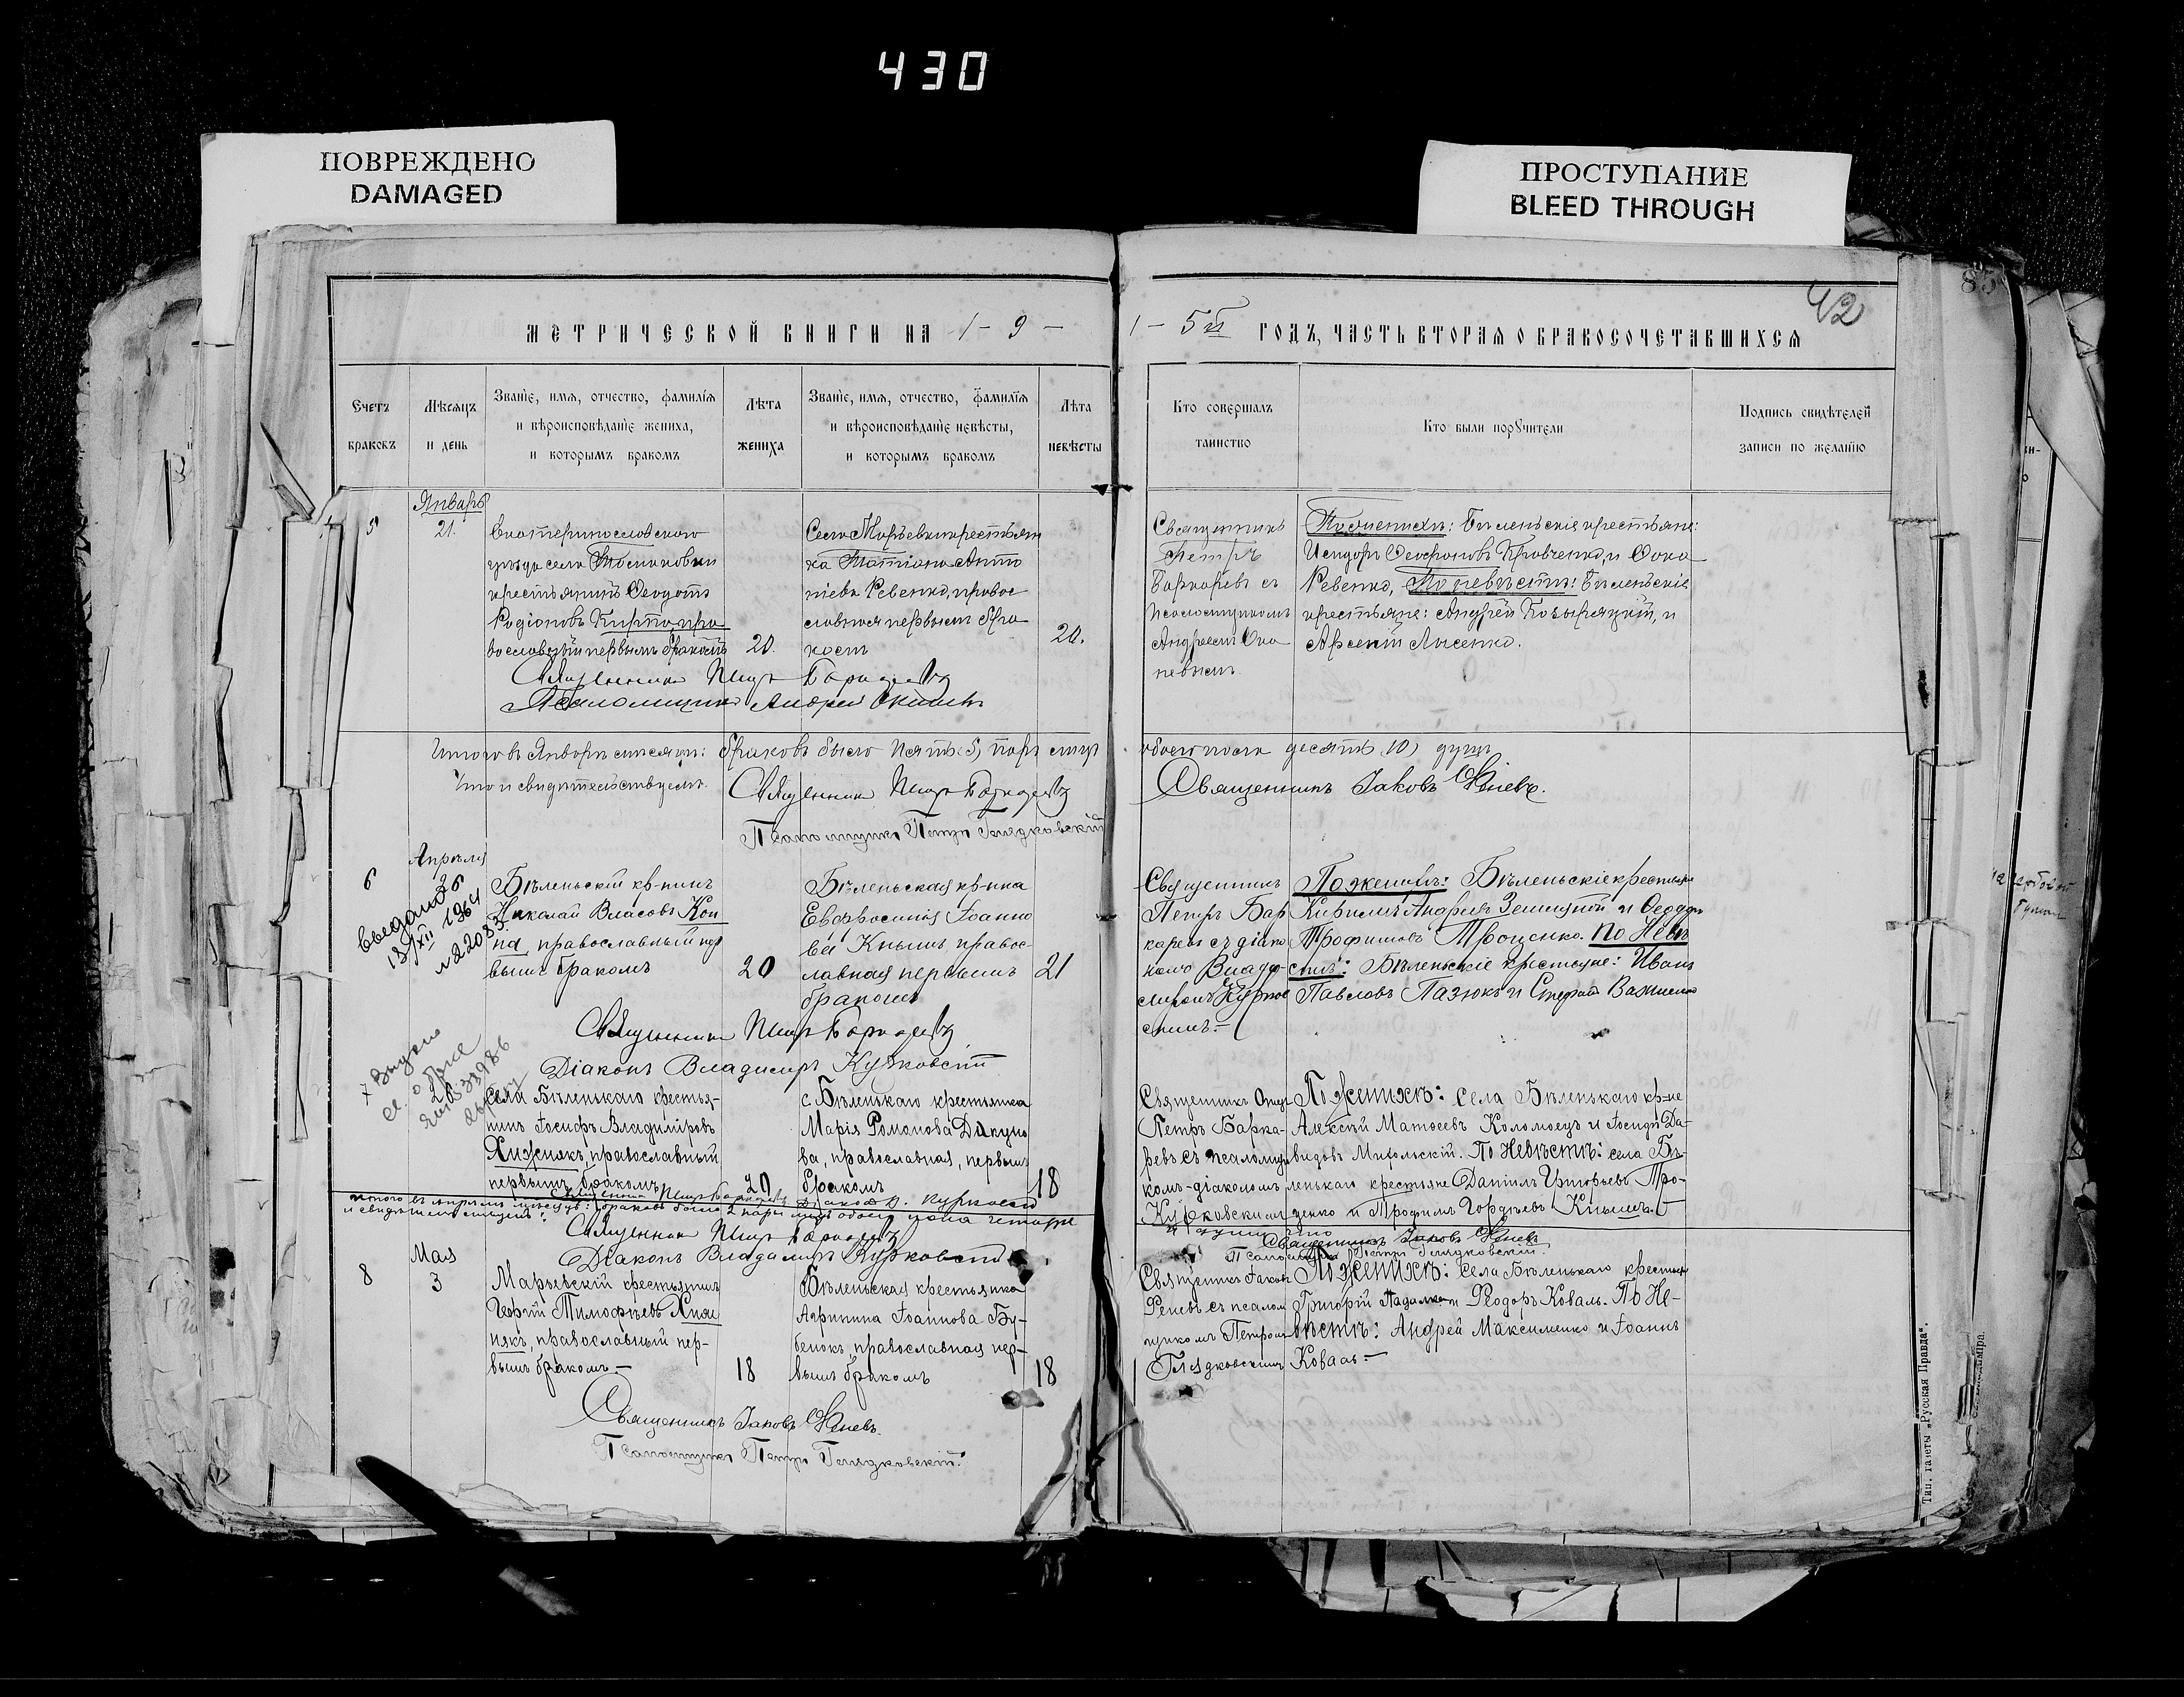 430
ПОВРЕЖДЕНО
DAMAGED
ПРОСТУПАНИЕ
BLEED THROUGH
85
42
МЕТРИЧЕСКОЙ КНИГИ НА 1-9-
1-5й ГОДЪ, ЧАСТЬ ВТОРАЯ О БРАКОСОЧЕТАВШИХСЯ
Счетъ
браковъ
Мѣсяцъ
и день
Званіе, имя, отчество, фамилія
и вѣроисповѣданіе жениха,
и которымъ бракомъ
Лѣта
жениха
Званіе, имя, отчество, фамилія
и вѣроисповѣданіе невѣсты,
и которымъ бракомъ
Лѣта
невѣсты
Кто совершалъ
таинство
Кто были поручители
Подпись свидѣтелей
записи по желанію
5
Январь
21.
Екатеринославскаго
уѣзда села
крестьянинъ Ѳеодотъ
Родіоновъ Кирпа, пра
вославный первымъ бракомъ
20.
Села Марьевки крестьян
ка Татіана Анто
ніева Ревенко, правос
лавная первымъ бра
комъ
20.
Священникъ
Петръ
Баркаревъ съ
Псаломщикомъ
Андреемъ
По женихѣ: Бѣленьскіе крестьяне:
Исидоръ Кравченко, и Ѳока
Ревенко, По невѣстѣ: Бѣленьскіе
крестьяне: Андрей и
Арсеній Лысенко.
Священникъ Петръ Баркаревъ
Псаломщикъ Андрей
Итого въ Январѣ мѣсяцѣ: браковъ было пять (5) паръ лицъ
обоего пола десять (10) душъ
Что и свидѣтельствуемъ.
Священникъ Петръ Баркаревъ
Священникъ Іаковъ
Псаломщикъ Петръ Глядковскій
6
Апрѣля
26
выдано
13/XII 1964
Бѣленьскій кр-нинъ
Николай Власовъ Коп
па, православный пер
вымъ бракомъ
20
Бѣленьская кр-нка
Евфросинія Іоанно
ва Кнышъ, правос-
лавная первымъ
бракомъ
21
Священникъ
Петръ Бар
каревъ съ діако
номъ Влади-
По женихѣ: Бѣленьскіе крестьяне
Кириллъ Андреевъ и Ѳеодоръ
Трофимовъ Троценко. По Невѣ
стѣ: Бѣленьскіе крестьяне: Иванъ
Павловъ Пазюкъ и Стефанъ
Священникъ Петръ Баркаревъ
Діаконъ Владимиръ Курковскій
7
26
Села Бѣленькаго крестья-
нинъ Іосифъ Владиміровъ
Хижнякъ, православный
первымъ бракомъ
20
с. Бѣленькаго крестьянка
Марія Романова Дикуно
ва, православная, первымъ
бракомъ
18
Священникъ Отецъ
Петръ Барка-
ревъ съ псаломщи
комъ-діакономъ
Курковскимъ
По Женихѣ: Села Бѣленькаго кр-не
Алексѣй Матѳеевъ Коломоецъ и Іосифъ Да-
видовъ Мигольскій. По Невѣстѣ: села Бѣ-
ленькаго крестьяне Даніилъ Григорьевъ Про-
ценко и Трофимъ Гордѣевъ Кнышъ.
Итого въ апрѣлѣ мѣсяцѣ: браковъ было 2 пары лицъ обоего пола четыре
и свидѣтельствуемъ:
Священникъ Петръ Баркаревъ
Діаконъ Владимиръ Курковскій
Священникъ Іаковъ
Псаломщикъ Петръ Глядковскій.
8
Мая
3
Марьевскій крестьянинъ
Георгій Тимофѣевъ Хиж
някъ, православный пер-
вымъ бракомъ —
18
Бѣленьская крестьянка
Агрипина Іоаннова Бу-
бенокъ, православная пер-
вымъ бракомъ
18
Священникъ Іаковъ
съ псалом
щикомъ Петромъ
Глядковскимъ
По Женихѣ: Села Бѣленькаго крестьяне
Григорій Падалка и Ѳеодоръ Коваль. По Не-
вѣстѣ: Андрей Максименко и Іоаннъ
Коваль. —
Священникъ Іаковъ
Псаломщикъ Петръ Глядковскій.
Тип. газеты „Русская Правда“.